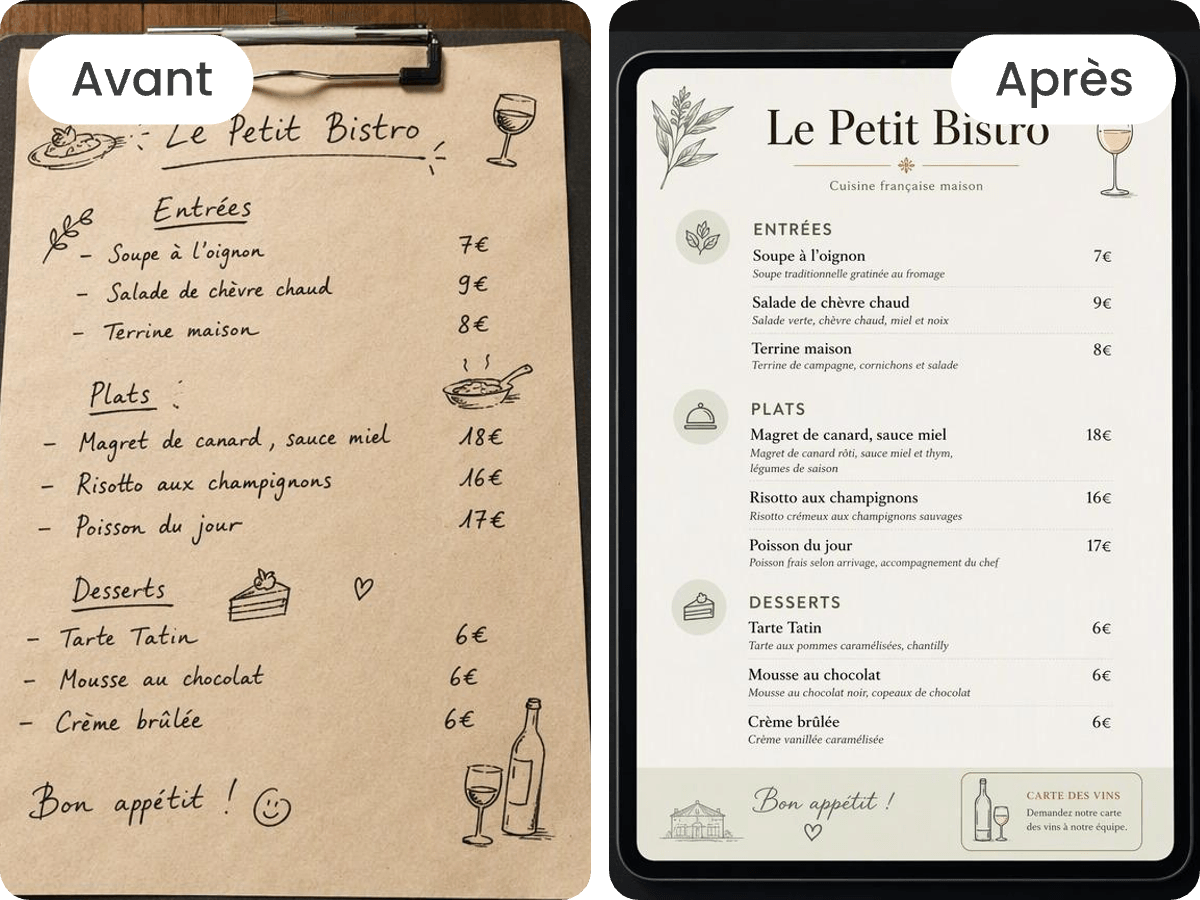 Avant
Le Petit Bistro
Entrées
- Soupe à l'oignon 7€
- Salade de chèvre chaud 9€
- Terrine maison 8€
Plats
- Magret de canard, sauce miel 18€
- Risotto aux champignons 16€
- Poisson du jour 17€
Desserts
- Tarte Tatin 6€
- Mousse au chocolat 6€
- Crème brûlée 6€
Bon appétit !
Après
Le Petit Bistro
Cuisine française maison
ENTRÉES
Soupe à l'oignon 7€
Soupe traditionnelle gratinée au fromage
Salade de chèvre chaud 9€
Salade verte, chèvre chaud, miel et noix
Terrine maison 8€
Terrine de campagne, cornichons et salade
PLATS
Magret de canard, sauce miel 18€
Magret de canard rôti, sauce miel et thym,
légumes de saison
Risotto aux champignons 16€
Risotto crémeux aux champignons sauvages
Poisson du jour 17€
Poisson frais selon arrivage, accompagnement du chef
DESSERTS
Tarte Tatin 6€
Tarte aux pommes caramélisées, chantilly
Mousse au chocolat 6€
Mousse au chocolat noir, copeaux de chocolat
Crème brûlée 6€
Crème vanillée caramélisée
Bon appétit !
CARTE DES VINS
Demandez notre carte
des vins à notre équipe.